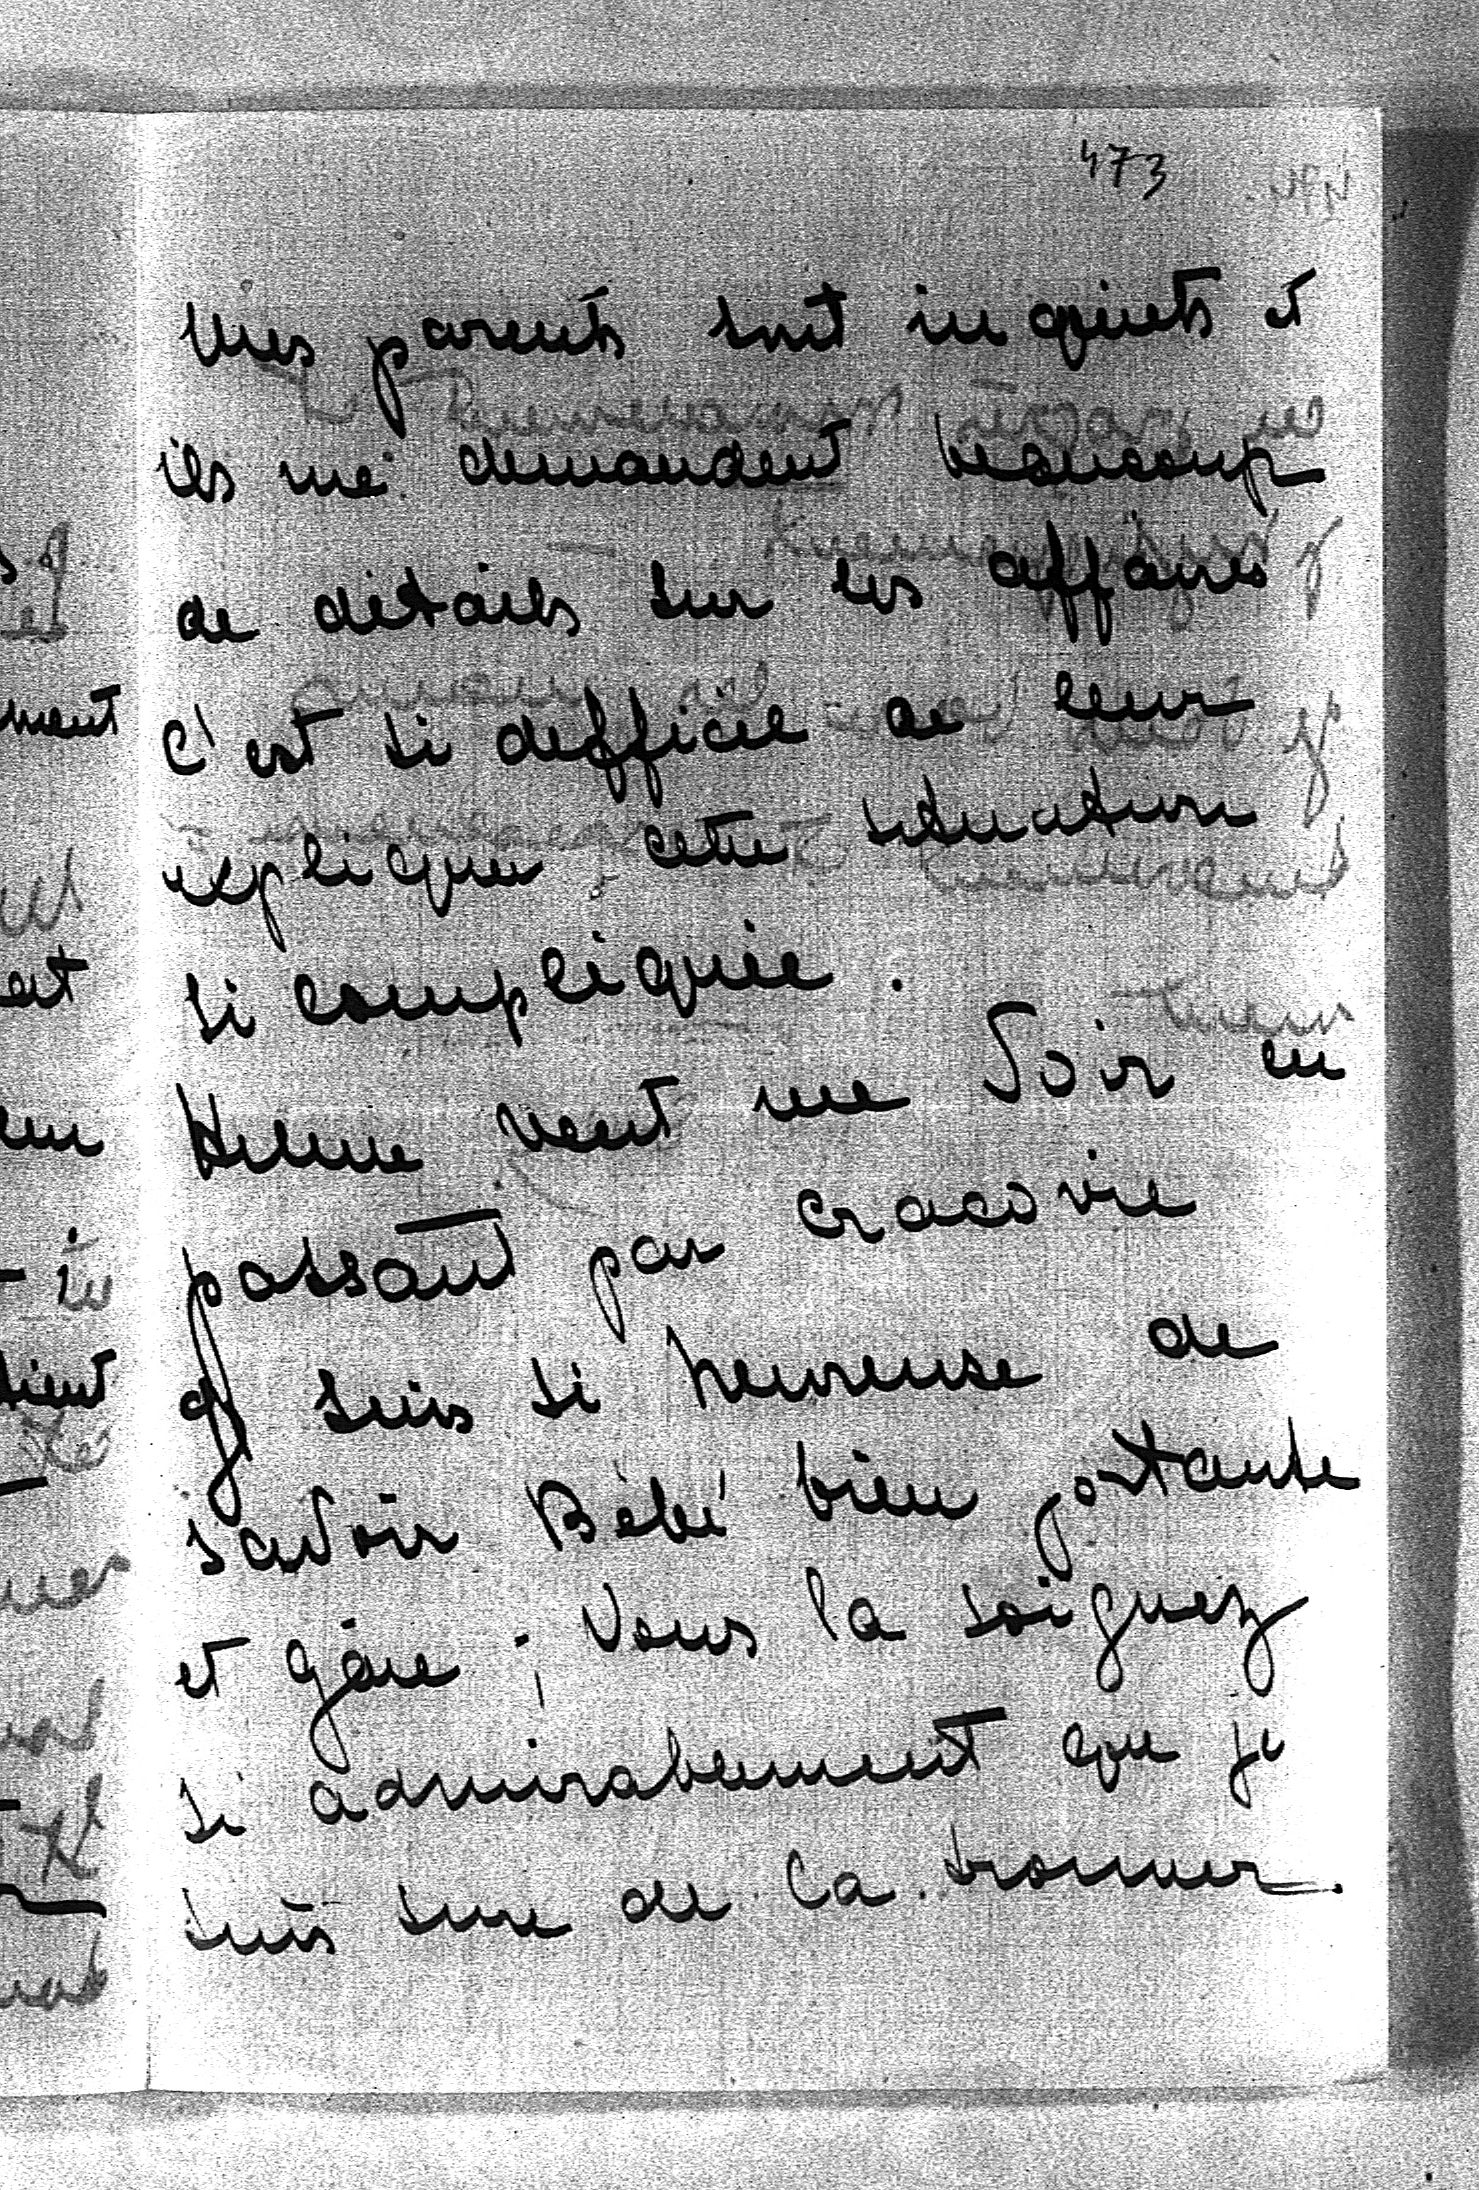 473
Mes parents sont inquiets et
ils me demandent beaucoup
de détails sur les affaires
C'est si difficile de leur
expliquer cette situation
si compliquée.
veut me Voir en
passant par Cracovie
Je suis si heureuse de
savoir Bébé bien portante
et gaie ; Vous la soignez
si admirablement que je
suis sure de la trouver.